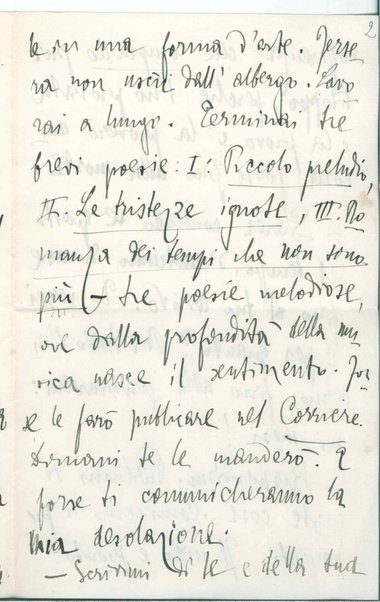 2
le in una forma d'arte. Ierse-
ra non uscii dall'albergo. Lavo
rai a lungo. Terminai tre
brevi poesie: I: Piccolo preludio,
II. Le tristezze ignote, III. Ro
manza dei tempi che non sono
più – tre poesie melodiose,
ove dalla profondità della mu
sica nasce il sentimento. For
se le farò pubblicare nel Corriere.
Domani te le manderò. E
forse ti comunicheranno la
mia desolazione.
– Scrivimi di te e della tua